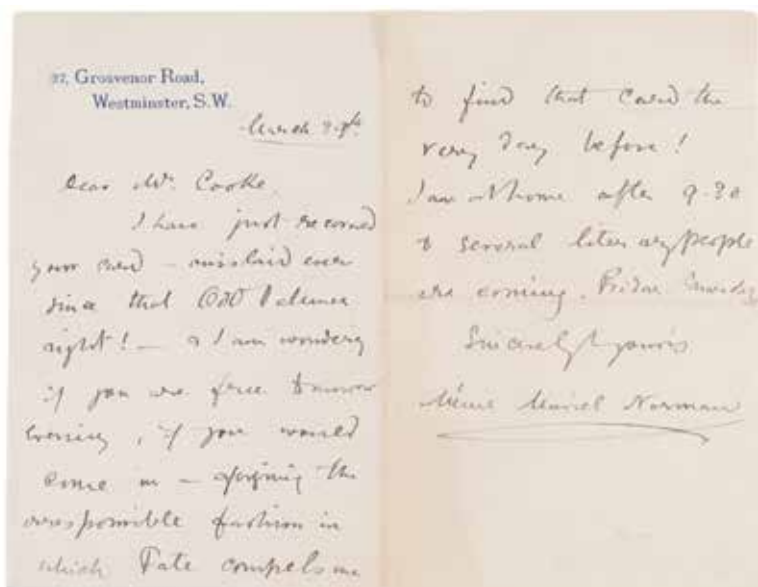 27, Grosvenor Road,
Westminster, S.W.
March
Dear Mr. Cooke,
I have just recovered
your card – mislaid ever
since that Odd Volumes
night! – & I am wondering
if you are free tomorrow
Evening, if you would
come in – forgiving the
irresponsible fashion in
which Fate compels me
to find that card the
very day before!
I am at home after 9.30
& several literary people
are coming.
Sincerely yours
Muriel Norman